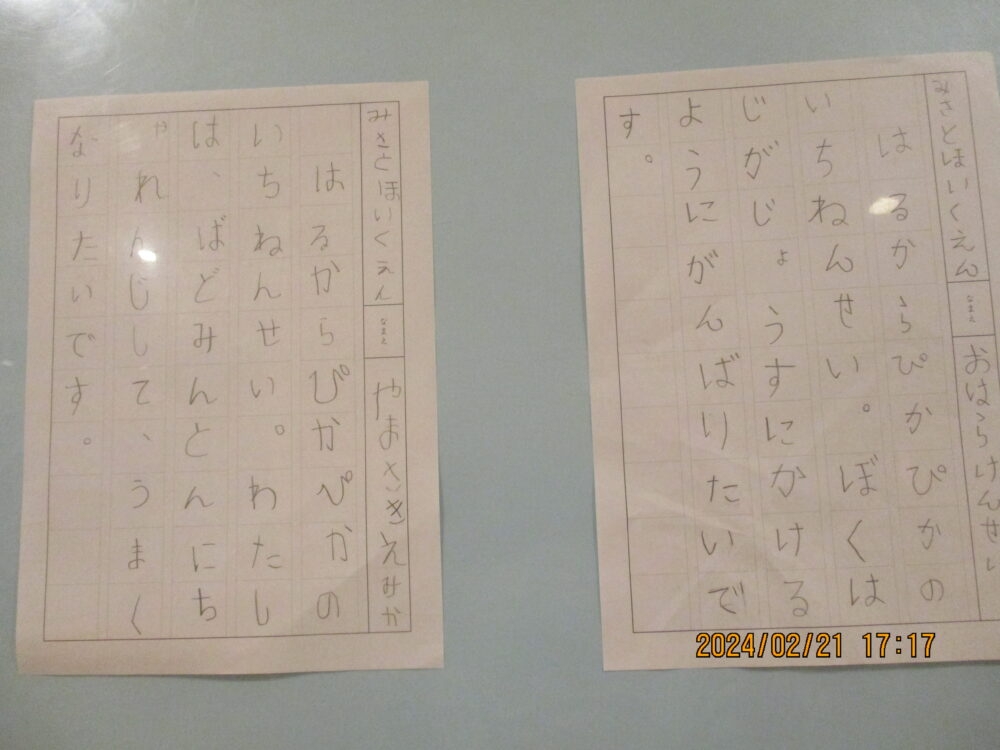 みさとほいくえん なまえ おはらけんせい
はるからぴかぴかの
いちねんせい。ぼくは
じがじょうすにかける
ようにがんばりたいで
す。
みさとほいくえん なまえ やまさきえみか
はるからぴかぴかの
いちねんせい。わたし
は、ばどみんとんにち
ゃれんじして、うまく
なりたいです。
2024/02/21 17:17